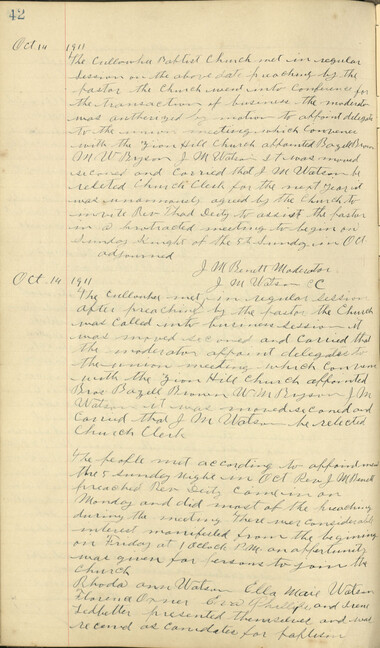 42
Oct 14 1911
The Cullowhee Baptist Church met in regular
session on the above date preaching by the
pastor the Church went into Conference for
the transaction of business the moderator
was authorized by motion to appoint delegate
to the union meeting which Convence
with the Zion Hill Church appointed Bazell Brown
M. W Bryson J. M Watson it was moved
seconed and Carried that J. M Watson be
relected Church Clerk for the next year it
was unanimously agreed by the Church to
invite Rev. Thad Deitz to assist the pastor
in a protracted meeting to begin on
Sunday night of the 5th Sunday in Oct
adjourned
J M Benett Moderator
J M Watson CC
Oct. 14 1911
The Cullowhee met in regular session
after preaching by the pastor the Church
was Called into business session it
was moved seconed and Carried that
the moderator appoint delegates to
the union meeting which Convene
with the Zion Hill Church appointed
Bros Bazell Brown W M Bryson J. M
Watson it was moved seconed and
Carried that J. M Watson be relected
Church Clerk
The people met according to appointment
the 5 Sunday night in Oct Rev. J M Benett
preached Rev Deitz Come in on
Monday and did most of the preaching
during the meeting There was considerable
interest manifested from the begining
on Friday at 1 oClock P.M. an oppertunity
was given for persons to join the
Church
Rhoda ann Watson Ella Marie Watson
Florence and Irene
Ledbetter presented themselves and was
receved as Canidates for baptism